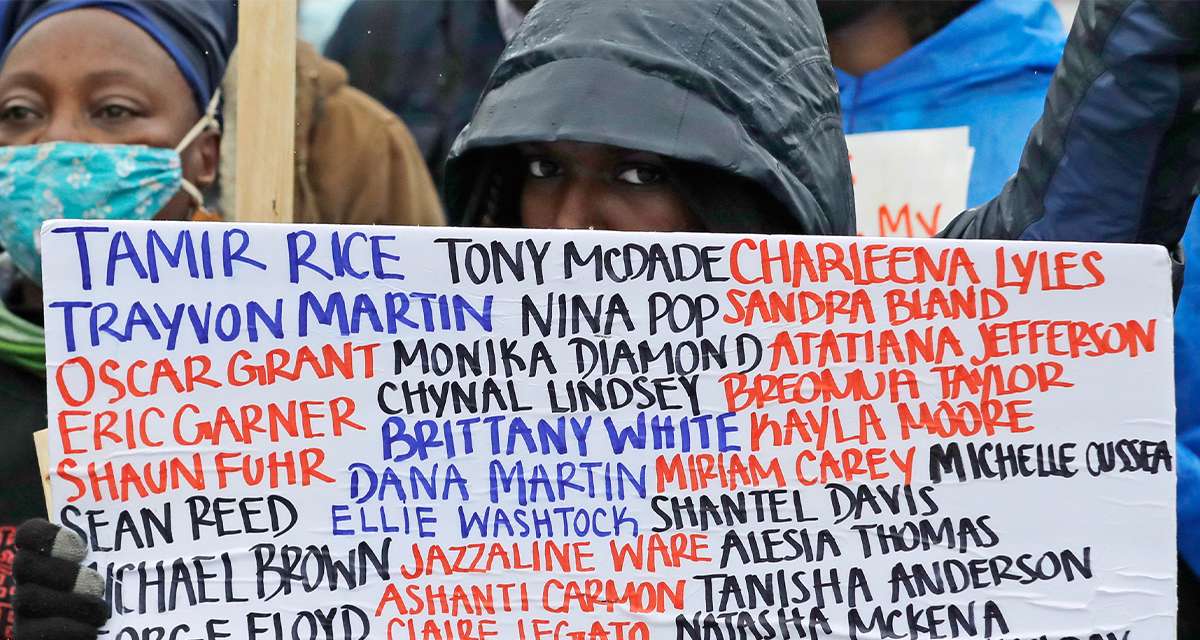 TAMIR RICE
TRAYVON MARTIN
OSCAR GRANT
ERIC GARNER
SHAUN FUHR
SEAN REED
MICHAEL BROWN
GEORGE FLOYD
TONY MCDADE
NINA POP
MONIKA DIAMOND
CHYNAL LINDSEY
BRITTANY WHITE
DANA MARTIN
ELLIE WASHTOCK
JAZZALINE WARE
ASHANTI CARMON
CLAIRE LEGATO
CHARLEENA LYLES
SANDRA BLAND
ATATIANA JEFFERSON
BREONNA TAYLOR
KAYLA MOORE
MIRIAM CAREY MICHELLE CUSSEA
SHANTEL DAVIS
ALESIA THOMAS
TANISHA ANDERSON
NATASHA MCKENA
MY